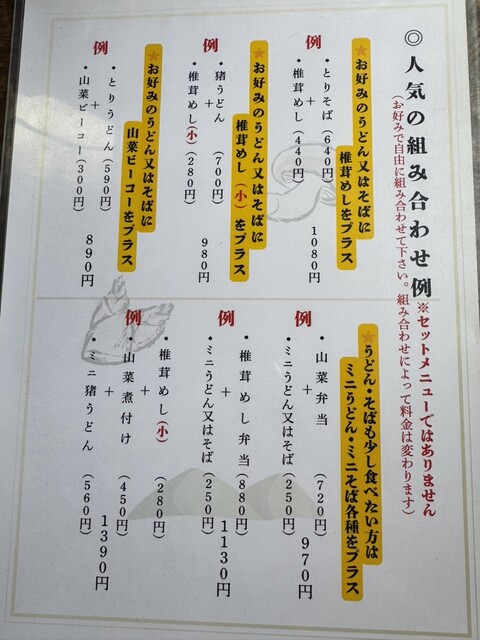 ◎人気の組み合わせ例※セットメニューではありません
(お好みで自由に組み合わせて下さい。組み合わせによって料金は変わります)
★お好みのうどん又はそばに
椎茸めしをプラス
例
・とりそば(640円)
+
・椎茸めし(440円)
1080円
★お好みのうどん又はそばに
椎茸めし(小)をプラス
例
・猪うどん(700円)
+
・椎茸めし(小)(280円)
980円
★お好みのうどん又はそばに
山菜ピーコーをプラス
例
・とりうどん(590円)
+
・山菜ピーコー(300円)
890円
★うどん・そばも少し食べたい方は
ミニうどん・ミニそば各種をプラス
例
・山菜弁当(720円)
+
・ミニうどん又はそば(250円)
970円
例
・椎茸めし弁当(880円)
+
・ミニうどん又はそば(250円)
1130円
例
・椎茸めし(小)(280円)
+
・山菜煮付け(450円)
+
・ミニ猪うどん(560円)
1390円